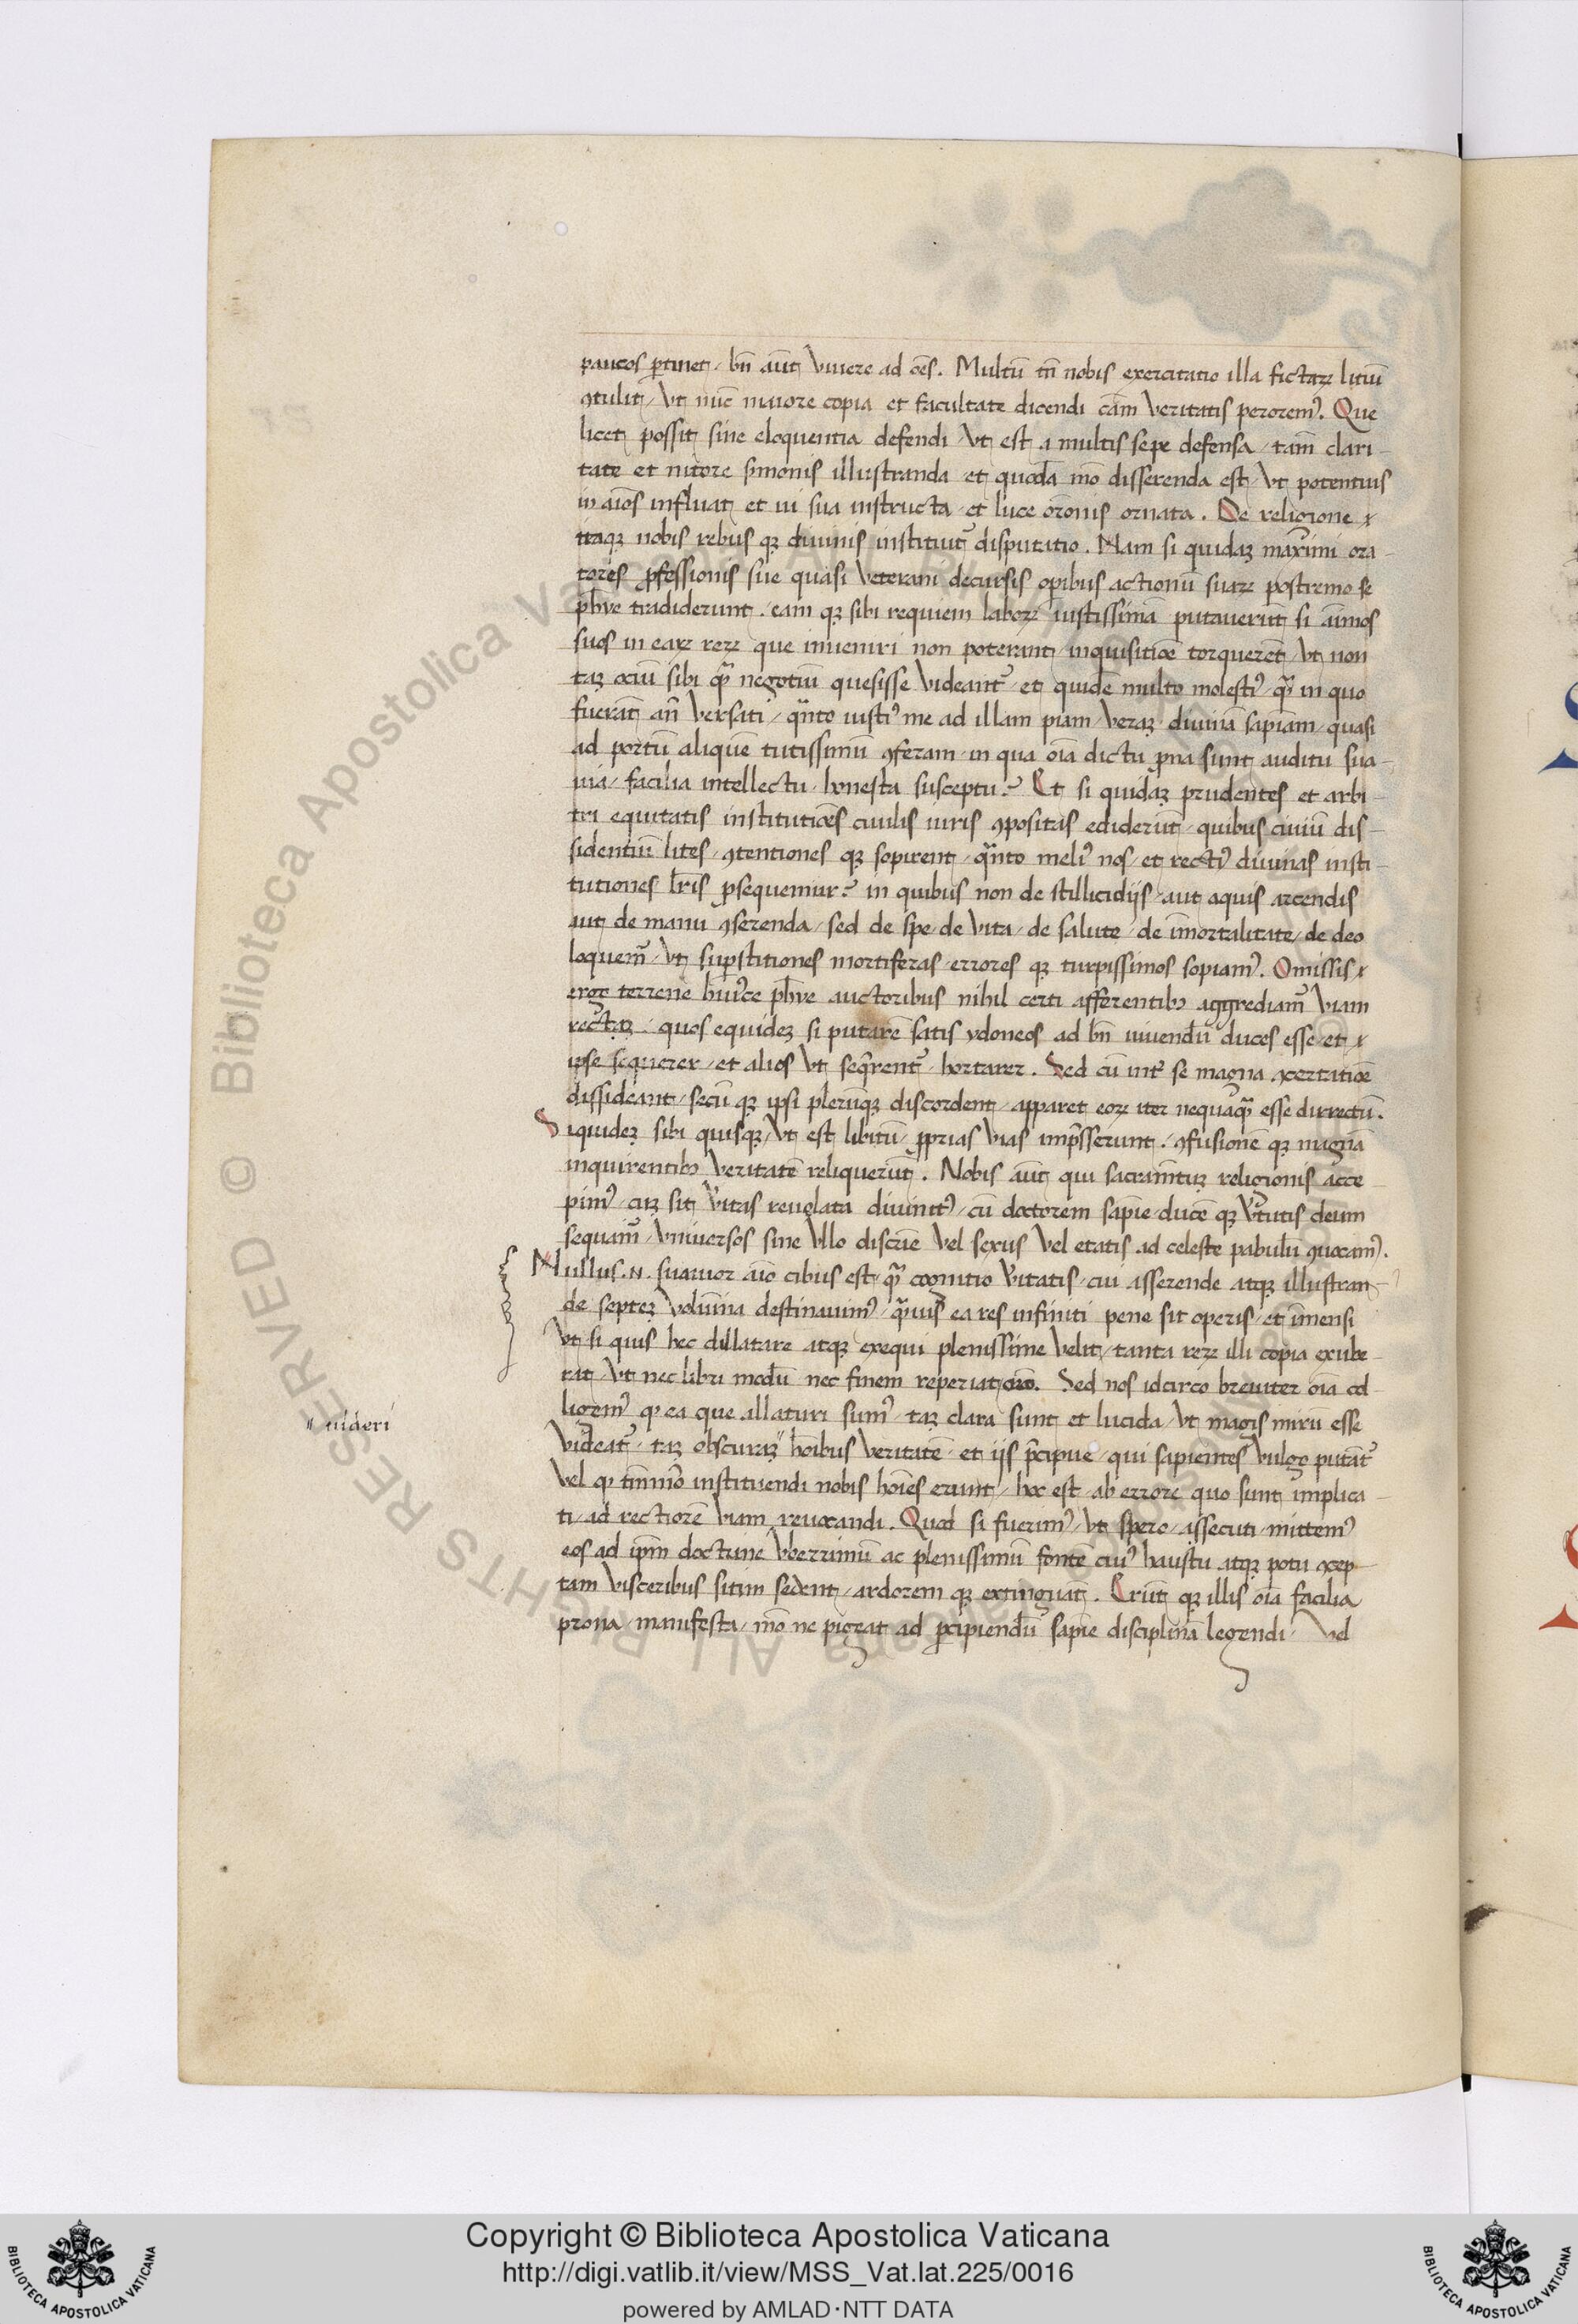 paucos ꝑtinet / bn̄ aūt viuere ad oēs. Multū tn̄ nobis exercitatio illa fictaꝝ litiū
ꝯtulit / vt nūc maiore copia et facultate dicendi cām veritatis peroremꝰ. Que
licet possit sine eloquentia defendi / vt est a multis sepe defensa / tam̄ clari-
tate et nitore ẜmonis illustranda et quodā mō disserenda est / vt potentius
in aīos influat et ui sua instructa et luce orōnis ornata. De religione
itaqꝫ nobis rebus qꝫ diuinis instituit᷑ disputatio. Nam si quidaꝫ maximi ora-
tores ꝓfessionis sue quasi veterani decursis oꝑibus actionū suaꝝ postremo se
ph̄ye tradiderunt. eam qꝫ sibi requiem laboꝝ iustissimā putauerūt si aīmos
suos in eaꝝ reꝝ que inueniri non poterant inquisitiōe torquerēt / vt non
taꝫ ociū sibi qꝫ̄ negotiū quesisse videant᷑ et quidē multo molestiꝰ qꝫ̄ in quo
fuerāt an̄ versati / qᷓnto iustiꝰ me ad illam piam / veraꝫ diuinā sapiām / quasi
ad portū aliquē tutissimū ꝯferam in qua oīa dictu ꝓna sunt auditu sua-
uia / facilia intellectu / honesta susceptu? Et si quidaꝫ prudentes et arbi-
tri equitatis institutiōes ciuilis iuris ꝯpositas ediderūt / quibus ciuiū dis-
sidentiū lites / ꝯtentiones qꝫ sopirent / qᷓnto meliꝰ nos / et rectiꝰ diuinas insti-
tutiones lr̄is ꝑsequemur? in quibus non de stillicidijs / aut aquis arcendis
aut de manu ꝯserenda / sed de spe de vita / de salute / de īmortalitate / de deo
loquem᷑ / vt suꝑstitiones mortiferas / errores qꝫ turpissimos sopiamꝰ. Omissis
ergo terrene huiꝰce ph̄ye auctoribus nihil certi afferentibꝫ aggrediam᷑ viam
rectaꝫ. quos equideꝫ si putarē satis ydoneos ad bn̄ viuendū duces esse et
ipse sequerer / et alios vt seq̄rent᷑ hortarer. Sed cū int᷑ se magna ꝯcertatiōe
dissideant / secū qꝫ ipsi plerūqꝫ discordent / apparet eoꝝ iter nequāqꝫ̄ esse dirrectū.
Siquideꝫ sibi quisqꝫ / vt est libitū / ꝓprias vias imp̄sserunt. ꝯfusionē qꝫ magnā
inquirentibꝫ veritatē reliquerūt. Nobis aūt qui sacramētuꝫ religionis acce-
pimꝰ / cuꝫ sit v̄itas reuelata diuinitꝰ / cū doctorem sapiē ducē qꝫ v̄tutis deum
sequam᷑ / vniuersos sine vllo discrīe vel sexus vel etatis ad celeste pabulū ꝯuocamꝰ.
Nullus .n. suauior aīo cibus est / qꝫ̄ cognitio v̄itatis / cui asserende atqꝫ illustran-
de septeꝫ volūina destinauimꝰ / qᷓuis ea res infiniti pene sit operis / et īmensi
vt si quis hec dillatare atqꝫ exequi plenissime velit / tanta reꝝ illi copia exube-
rat / vt nec libri modū nec finem reperiat orō. Sed nos idcirco breuiter oīa col-
ligemꝰ qꝫ ea que allaturi sumꝰ / taꝫ clara sunt et lucida / vt magis mirū esse
videat᷑ / taꝫ obscuraꝫ" hoībus veritatē et ijs p̄cipue / qui sapientes vulgo putāt᷑
vel qꝫ tm̄mō instituendi nobis hoīes erunt / hoc est ab errore quo sunt implica-
ti / ad rectiorē viam reuocandi. Quod si fuerimꝰ / vt spero / assecuti / mittemꝰ
eos ad ip̄m doctrine vberrimū ac plenissimū fontē cuiꝰ haustu atqꝫ potu ꝯcep-
tam visceribus sitim sedent / ardorem qꝫ extinguāt. Erūt qꝫ illis oīa facilia
prona / manifesta / mō ne pigeat ad ꝑcipiendū sapiē disciplinā legendi / vel
" uideri
Biblioteca Apostolica Vaticana
ALL RIGHTS RESERVED ©
Copyright © Biblioteca Apostolica Vaticana
http://digi.vatlib.it/view/MSS_Vat.lat.225/0016
powered by AMLAD·NTT DATA
BIBLIOTECA APOSTOLICA VATICANA
BIBLIOTECA APOSTOLICA VATICANA